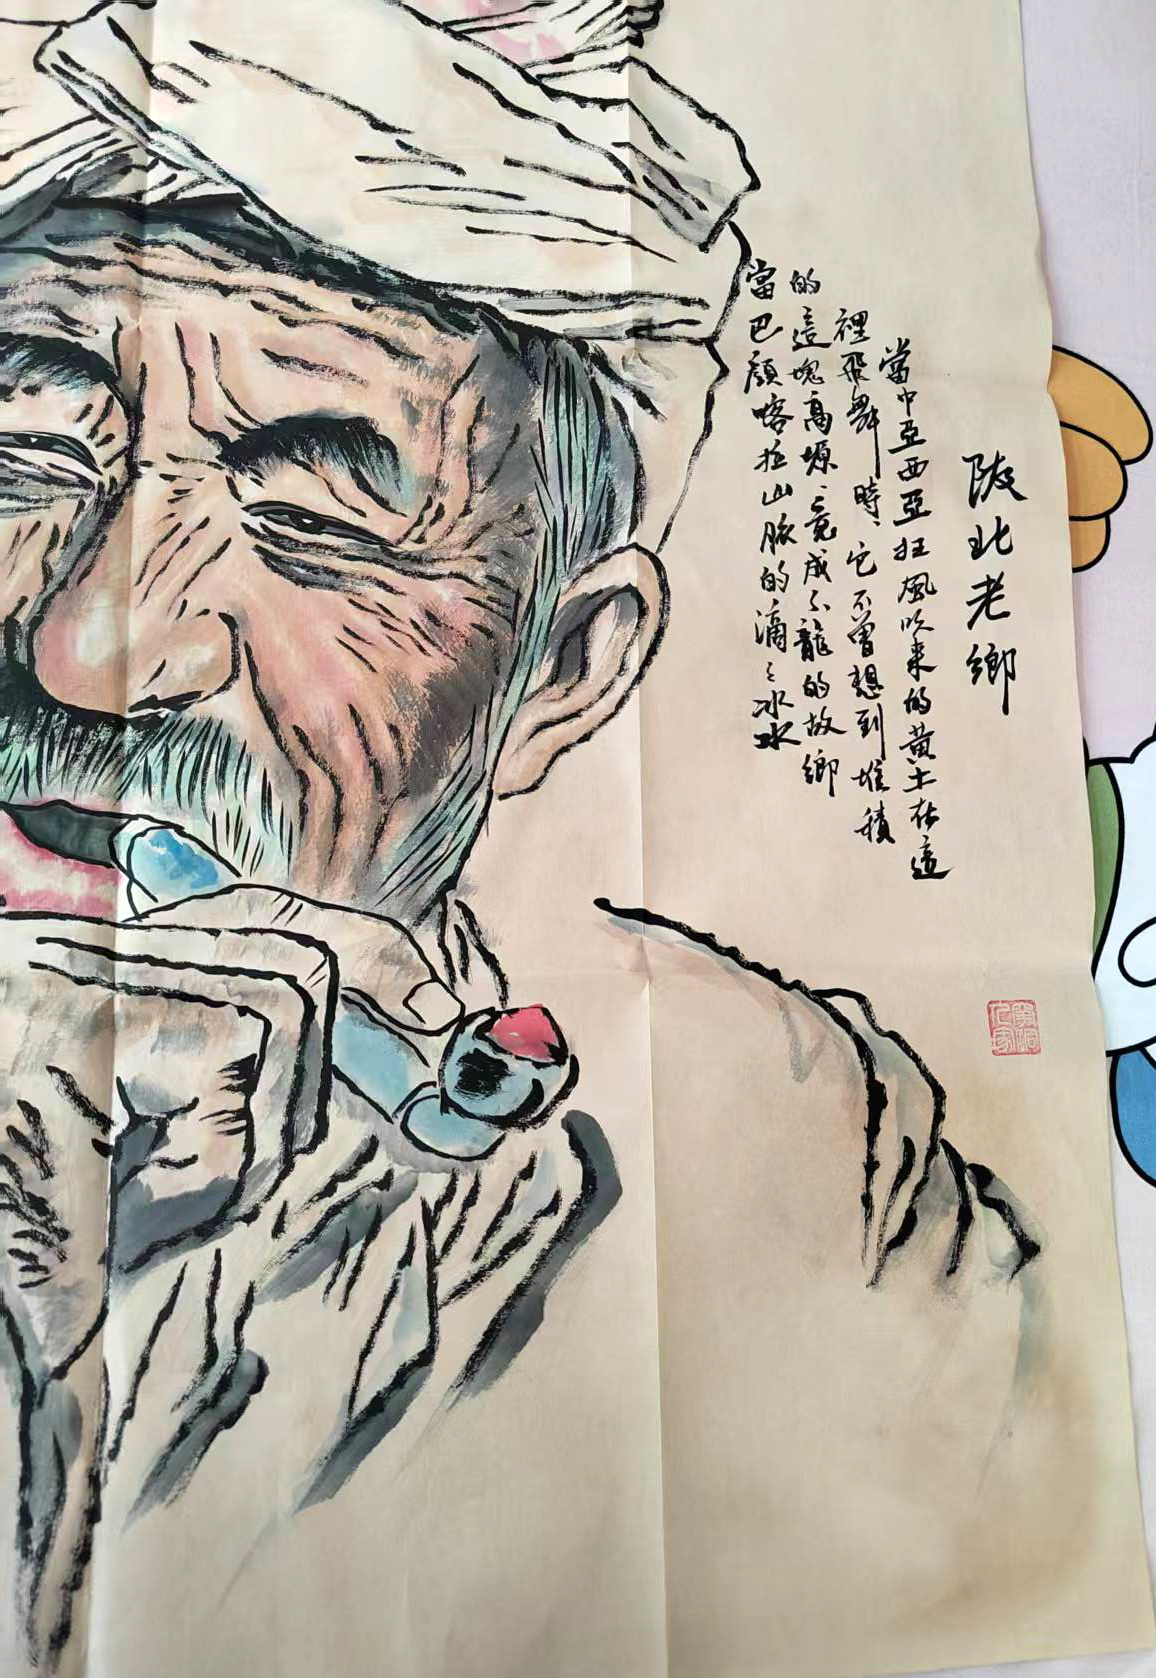 陕北老鄉
當中亞西亞狂風吹来的黄土在這
裡飛舞時、它不曾想到堆積
的這塊高塬、竟成了龍的故鄉
當巴顔喀拉山脉的滴滴冰水